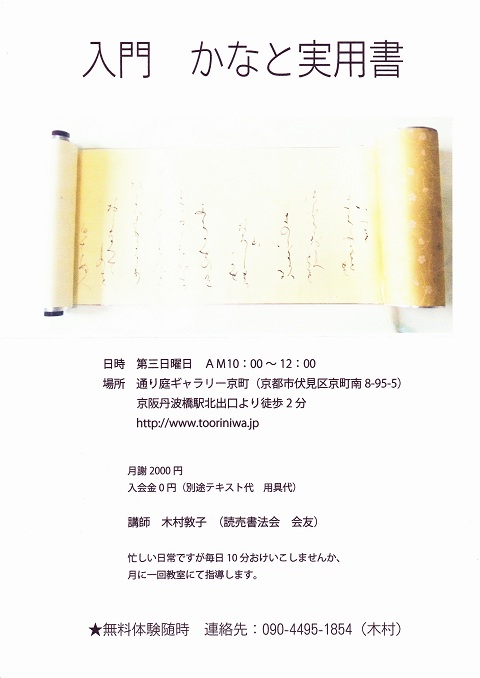 入門　かなと実用書
日時　第三日曜日　ＡＭ10：00 〜 12：00
場所　通り庭ギャラリー京町（京都市伏見区京町南 8-95-5）
京阪丹波橋駅北出口より徒歩 2 分
http://www.tooriniwa.jp
月謝 2000 円
入会金 0 円（別途テキスト代　用具代）
講師　木村敦子　（読売書法会　会友）
忙しい日常ですが毎日 10 分おけいこしませんか、
月に一回教室にて指導します。
★無料体験随時　連絡先：090-4495-1854（木村）